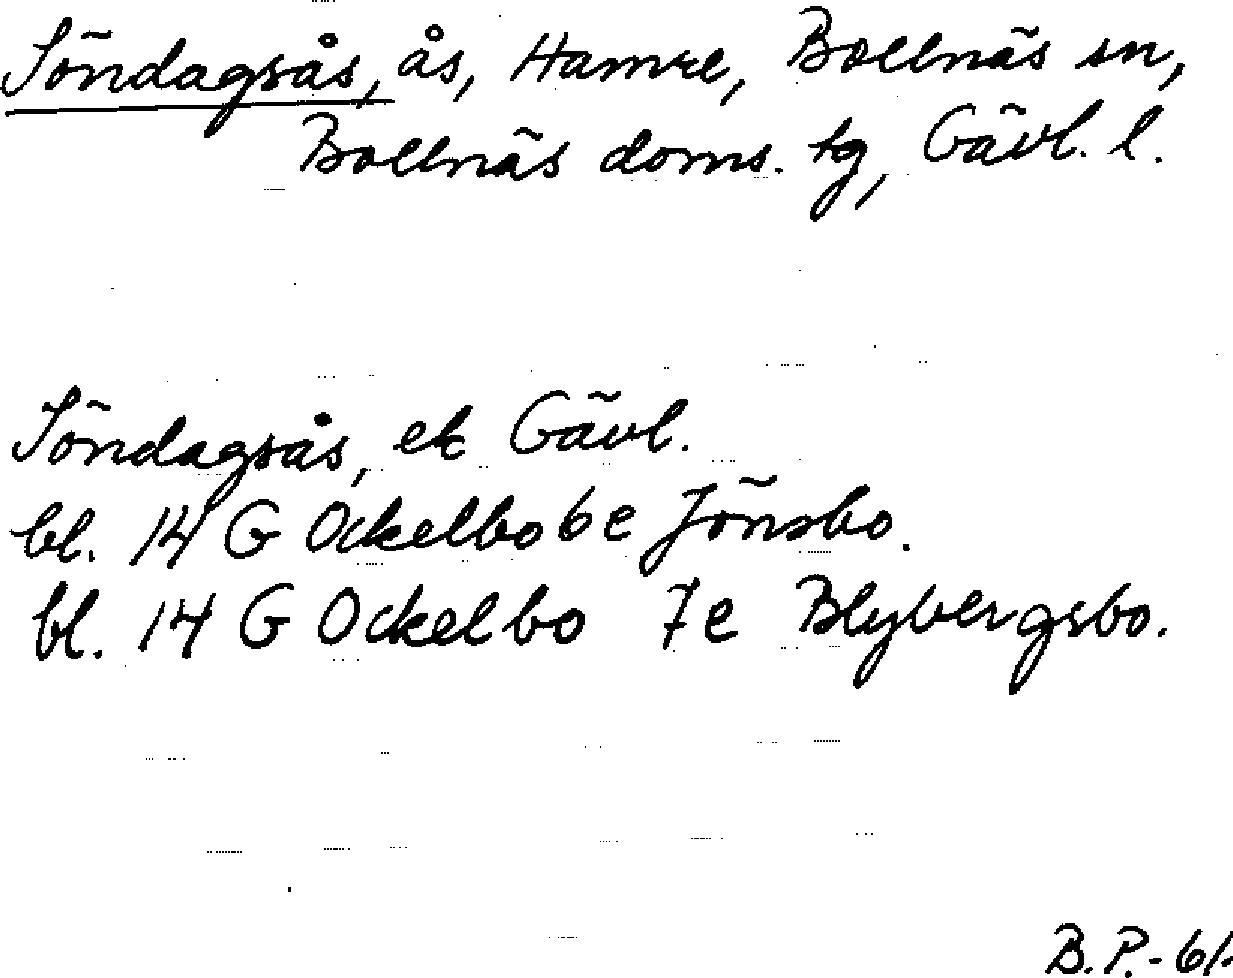 Söndagsås, ås, Hamre, Bollnäs sn,
Bollnäs doms. tg, Gävl. l.
Söndagsås, ek Gävl.
bl. 14 G Ockelbo 6 e Jönsbo.
bl. 14 G Ockelbo 7 e Blybergsbo.
B.P.-61.